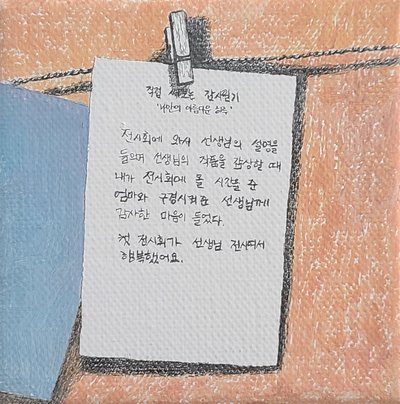 직접 써보는 감사일기
'나만의 아름다운 하루'
전시회에 와서 선생님의 설명을
들으며 선생님의 작품을 감상할 때
내가 전시회에 올 시간을 준
엄마와 구경시켜준 선생님께
감사한 마음이 들었다.
첫 전시회가 선생님 전시여서
행복했어요.